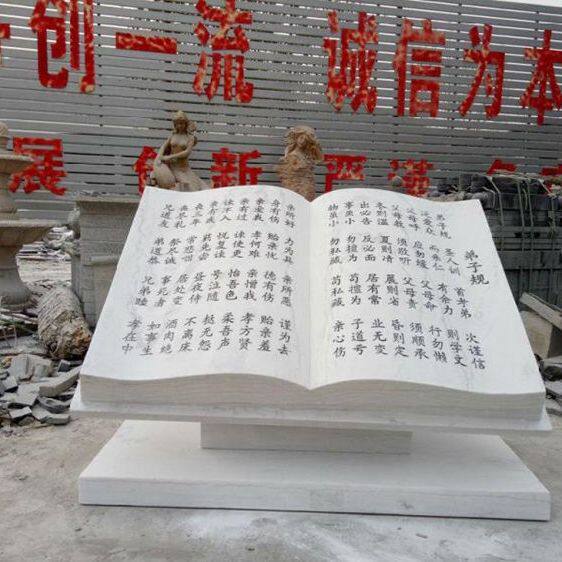 创一流 诚信为本
展 创新 严谨
弟子规
弟子规 圣人训 首孝弟 次谨信
泛爱众 而亲仁 有余力 则学文
父母呼 应勿缓 父母命 行勿懒
父母教 须敬听 父母责 须顺承
冬则温 夏则凊 晨则省 昏则定
出必告 反必面 居有常 业无变
事虽小 勿擅为 苟擅为 子道亏
物虽小 勿私藏 苟私藏 亲心伤
亲所好 力为具 亲所恶 谨为去
身有伤 贻亲忧 德有伤 贻亲羞
亲爱我 孝何难 亲憎我 孝方贤
亲有过 谏使更 怡吾色 柔吾声
谏不入 悦复谏 号泣随 挞无怨
亲有疾 药先尝 昼夜侍 不离床
丧三年 常悲咽 居处变 酒肉绝
丧尽礼 祭尽诚 事死者 如事生
兄道友 弟道恭 兄弟睦 孝在中